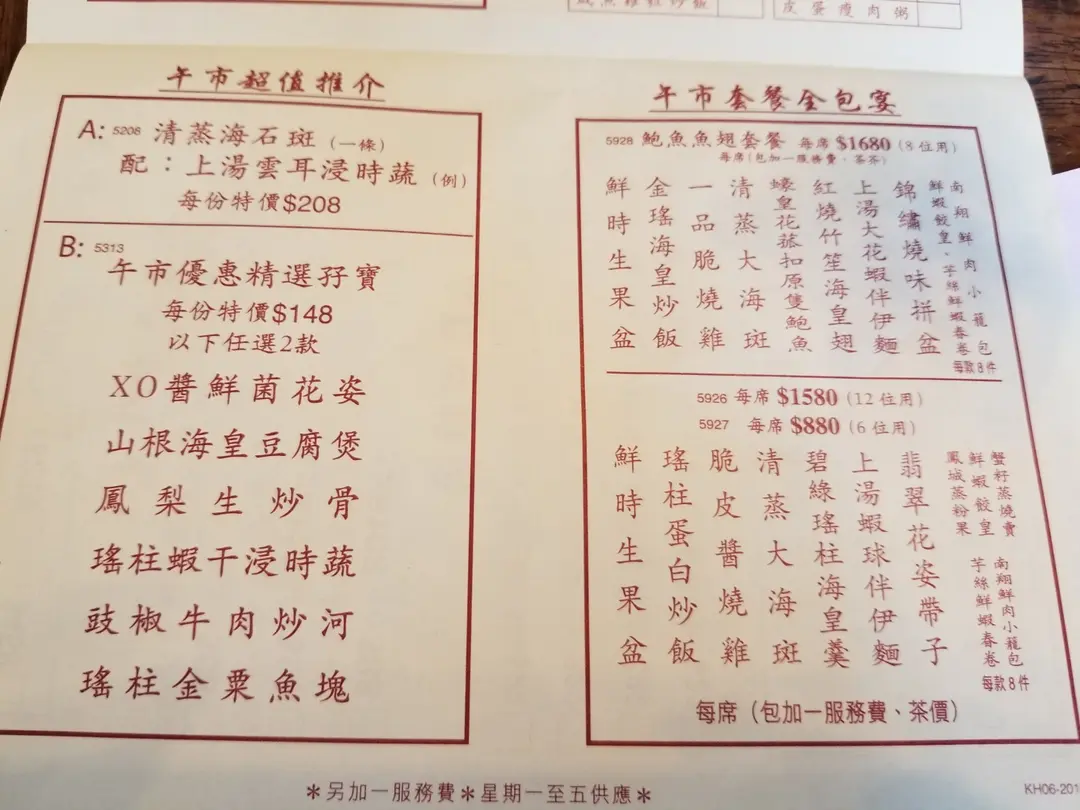 皮蛋瘦肉粥
午市超值推介
A: 5208 清蒸海石斑 (一條)
配：上湯雲耳浸時蔬 (例)
每份特價$208
B: 5313
午市優惠精選孖寶
每份特價$148
以下任選2款
XO醬鮮菌花姿
山根海皇豆腐煲
鳳梨生炒骨
瑤柱蝦干浸時蔬
豉椒牛肉炒河
瑤柱金粟魚塊
午市套餐全包宴
5928 鮑魚魚翅套餐 每席 $1680 (8位用)
每席(包加一服務費、茶芥)
南翔鮮肉小籠包
鮮蝦餃皇、芋絲鮮蝦春卷
每款8件
錦繡燒味拼盆
上湯大花蝦伴伊麵
紅燒竹笙海皇翅
蠔皇花菰扣原隻鮑魚
清蒸大海斑
一品脆燒雞
金瑤海皇炒飯
鮮時生果盆
5926 每席 $1580 (12位用)
5927 每席 $880 (6位用)
蟹籽蒸燒賣
鮮蝦餃皇
鳳城蒸粉果
南翔鮮肉小籠包
芋絲鮮蝦春卷
每款8件
翡翠花姿帶子
上湯蝦球伴伊麵
碧綠瑤柱海皇羹
清蒸大海斑
脆皮醬燒雞
瑤柱蛋白炒飯
鮮時生果盆
每席（包加一服務費、茶價）
＊另加一服務費＊星期一至五供應＊
KH06-201